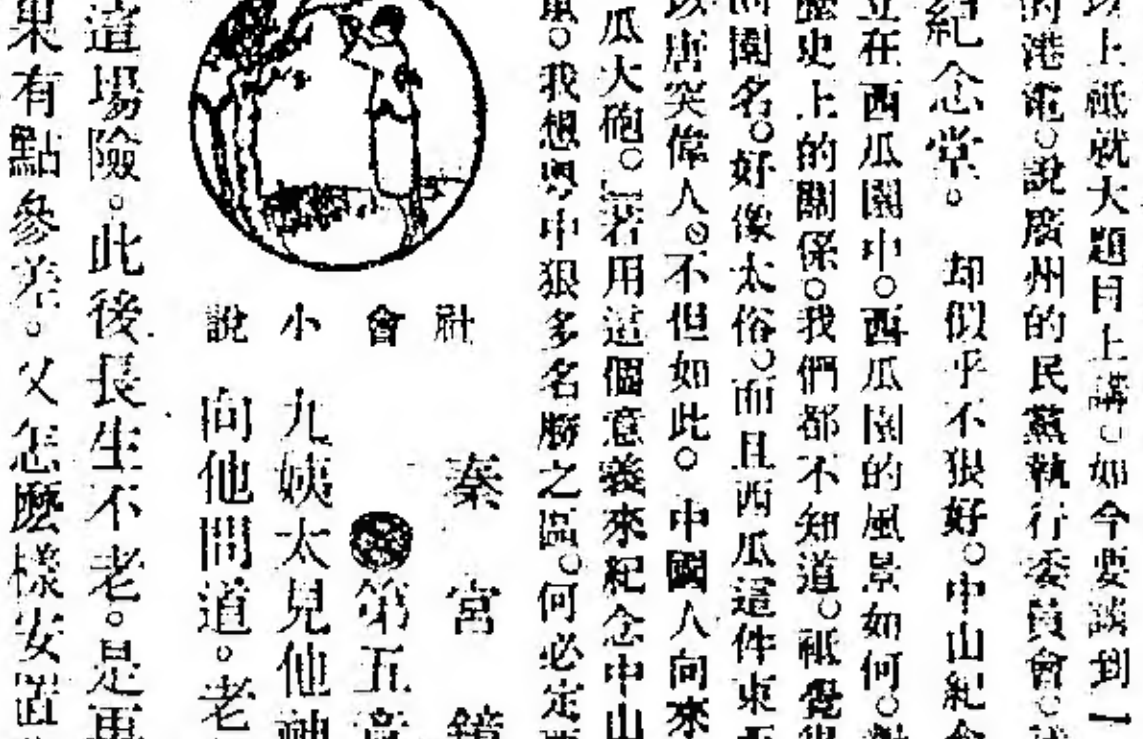 上祇就大題目上講。如今要談到一
的港電。說廣州的民黨執行委員會。
紀念堂。 却似乎不狠好。中山紀念
立在西瓜園中。西瓜園的風景如何。
歷史上的關係。我們都不知道。祇覺得
園名。好像太俗。而且西瓜這件東西
唐突偉人。不但如此。中國人向來
瓜大砲。若用這個意義來紀念中山
。我想粤中狠多名勝之區。何必定
社會小說
秦宮鏡
第五章
九姨太見他神
向他問道。老
這場險。此後長生不老。是再
果有點參差。又怎麼樣安置